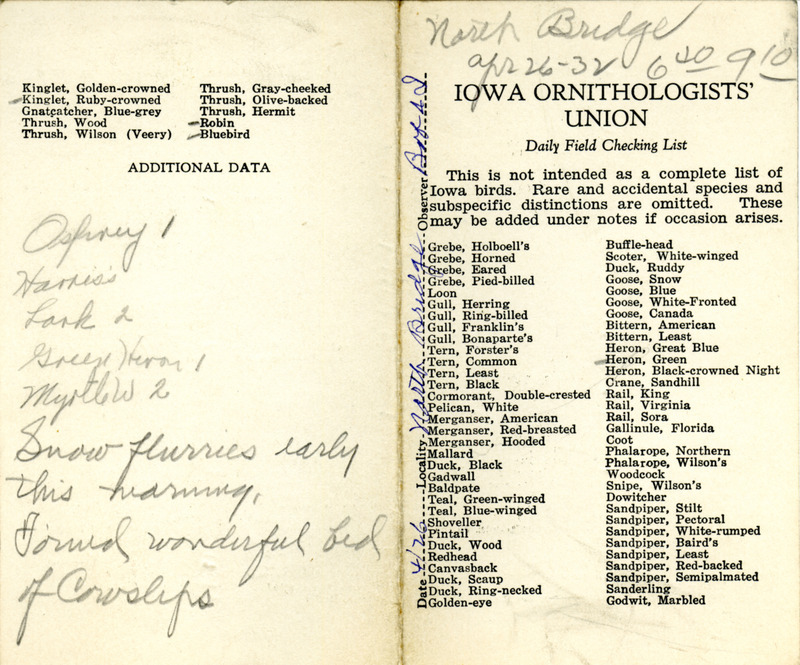 Kinglet, Golden-crowned
Kinglet, Ruby-crowned
Gnatcatcher, Blue-grey
Thrush, Wood
Thrush, Wilson (Veery)
Thrush, Gray-cheeked
Thrush, Olive-backed
Thrush, Hermit
Robin
Bluebird
ADDITIONAL DATA
Osprey 1
Harris's
Lark 2
Green Heron 1
Myrtle W 2
Snow flurries early
this morning.
Found wonderful bed
of Cowslips
North Bridge
Apr 26-32 6 40 9 10
IOWA ORNITHOLOGISTS'
UNION
Daily Field Checking List
This is not intended as a complete list of
Iowa birds. Rare and accidental species and
subspecific distinctions are omitted. These
may be added under notes if occasion arises.
Date 4/26 Locality North Bridge Observer
Grebe, Holboell's
Grebe, Horned
Grebe, Eared
Grebe, Pied-billed
Loon
Gull, Herring
Gull, Ring-billed
Gull, Franklin's
Gull, Bonaparte's
Tern, Forster's
Tern, Common
Tern, Least
Tern, Black
Cormorant, Double-crested
Pelican, White
Merganser, American
Merganser, Red-breasted
Merganser, Hooded
Mallard
Duck, Black
Gadwall
Baldpate
Teal, Green-winged
Teal, Blue-winged
Shoveller
Pintail
Duck, Wood
Redhead
Canvasback
Duck, Scaup
Duck, Ring-necked
Golden-eye
Buffle-head
Scoter, White-winged
Duck, Ruddy
Goose, Snow
Goose, Blue
Goose, White-Fronted
Goose, Canada
Bittern, American
Bittern, Least
Heron, Great Blue
Heron, Green
Heron, Black-crowned Night
Crane, Sandhill
Rail, King
Rail, Virginia
Rail, Sora
Gallinule, Florida
Coot
Phalarope, Northern
Phalarope, Wilson's
Woodcock
Snipe, Wilson's
Dowitcher
Sandpiper, Stilt
Sandpiper, Pectoral
Sandpiper, White-rumped
Sandpiper, Baird's
Sandpiper, Least
Sandpiper, Red-backed
Sandpiper, Semipalmated
Sanderling
Godwit, Marbled